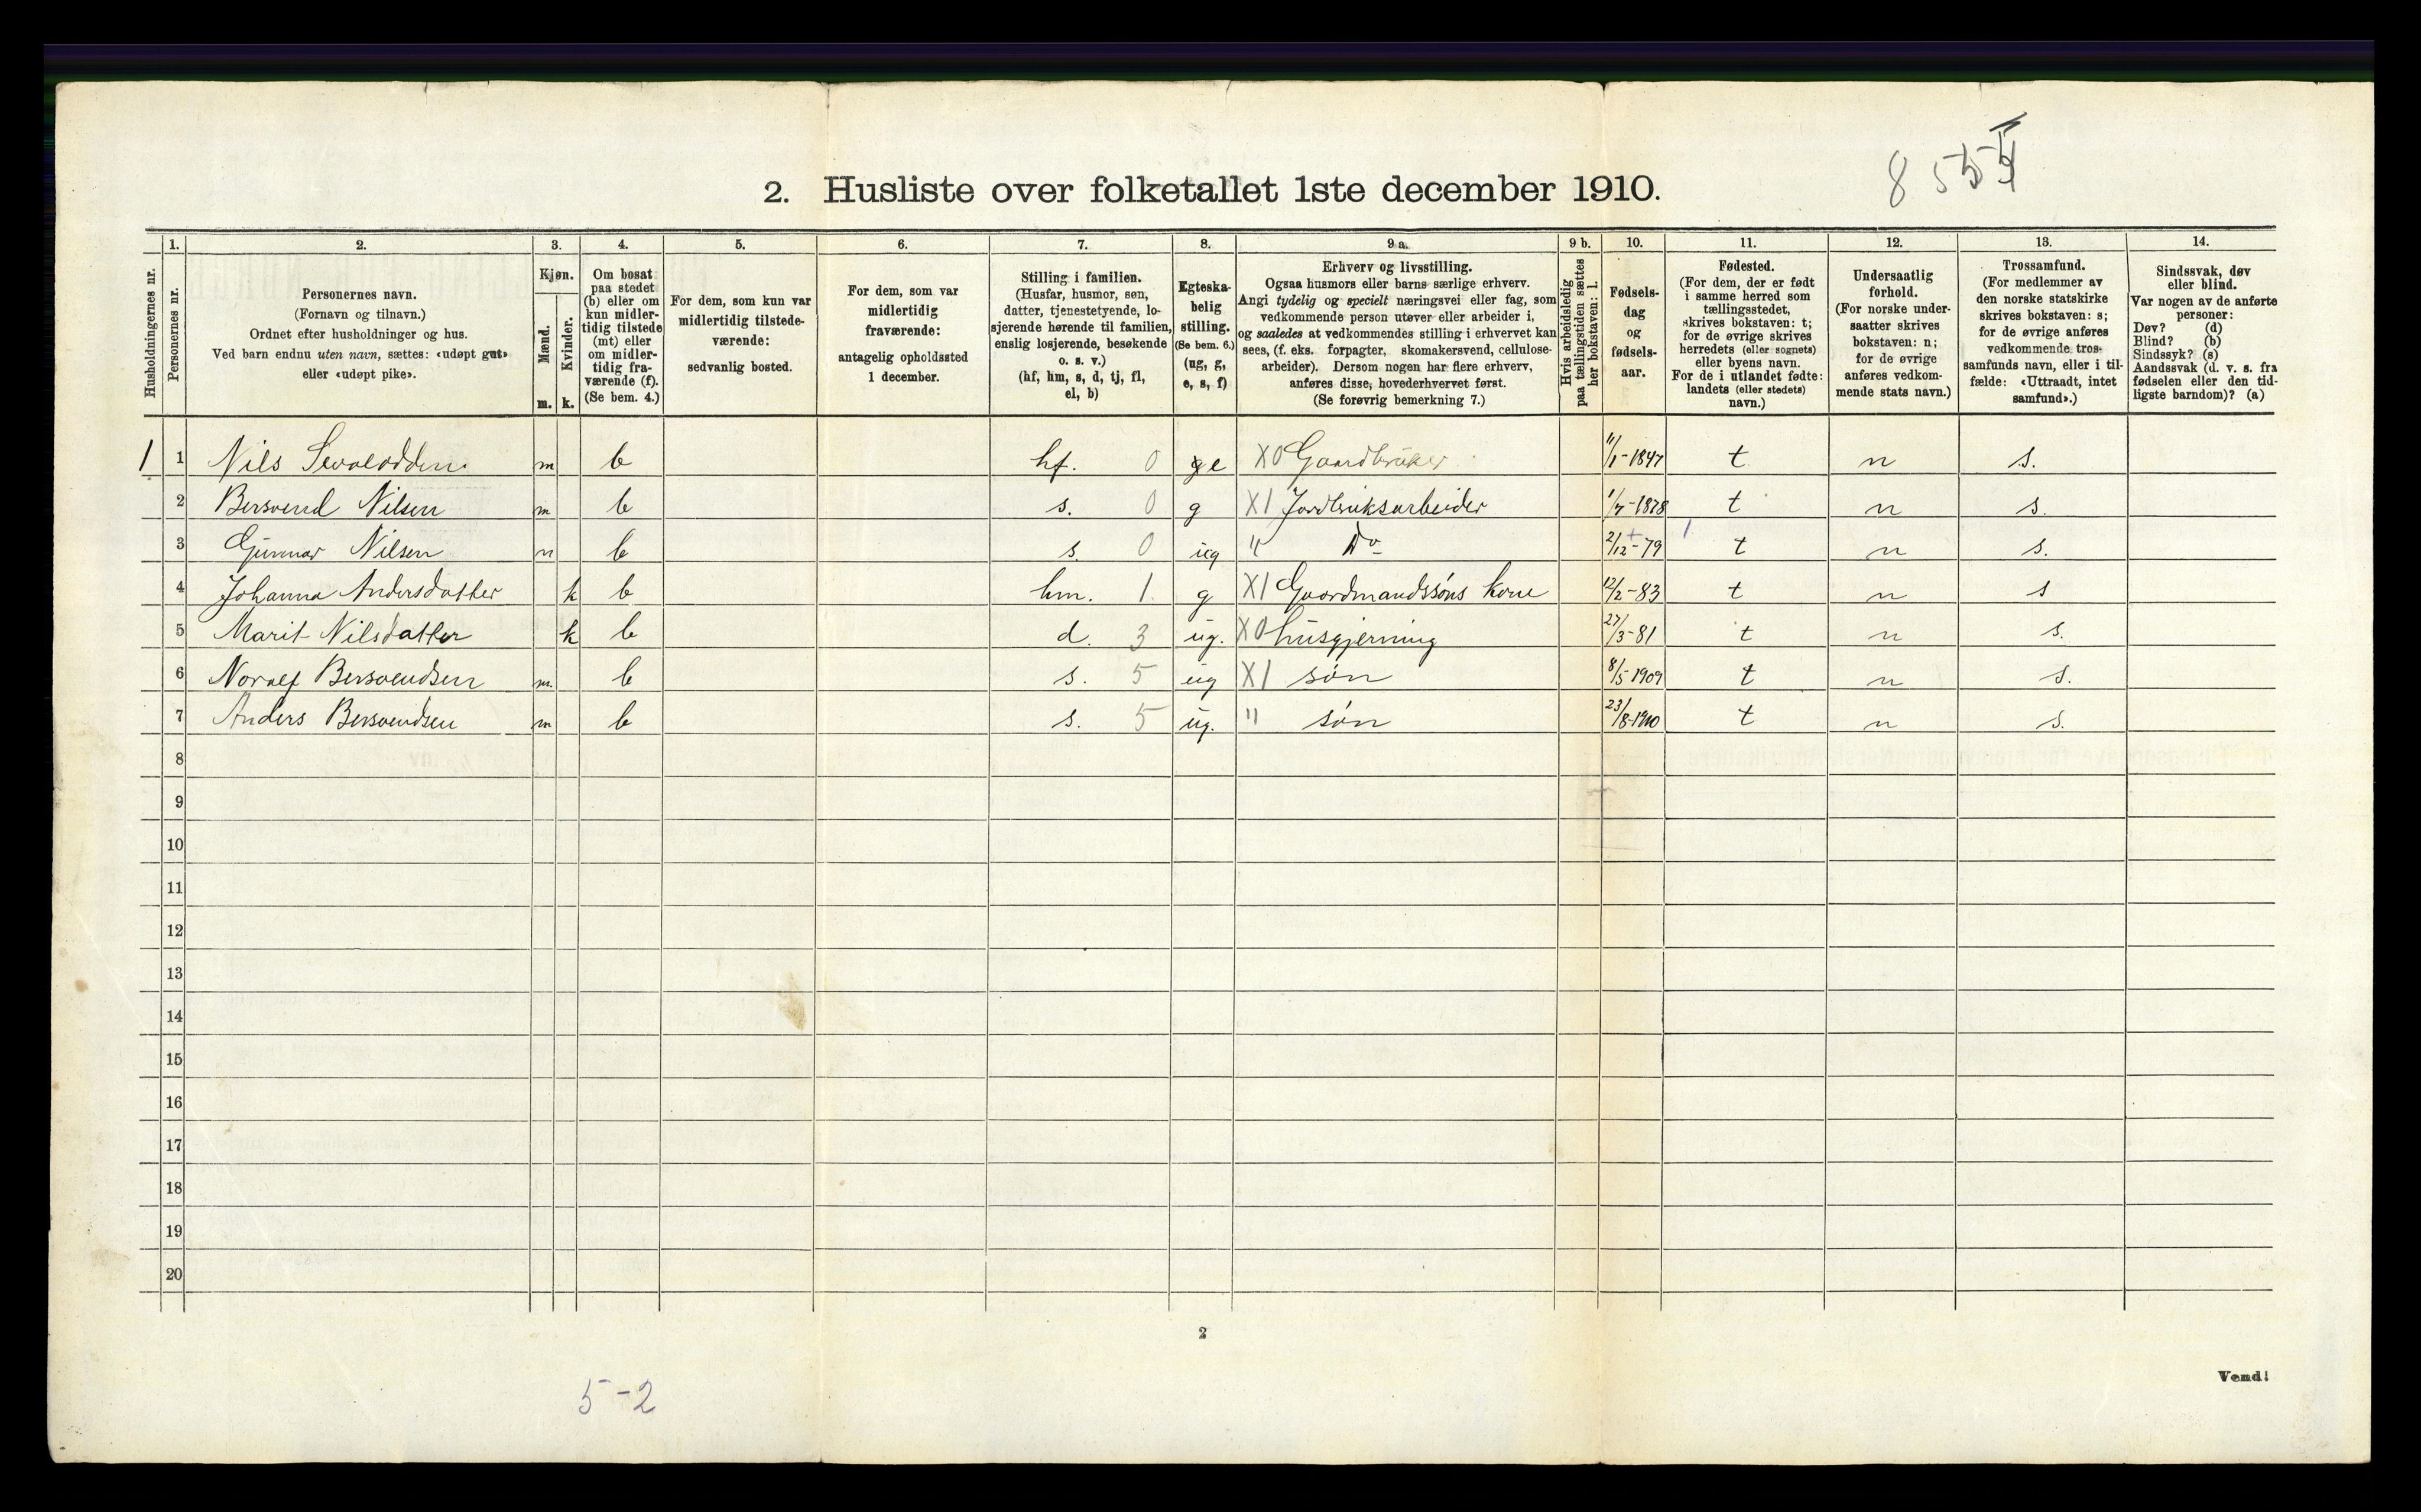 8 5
2. Husliste over folketallet 1ste december 1910.
Husholdningernes nr.
1.
Personernes nr.
2.
Personernes navn.
(Fornavn og tilnavn.)
Ordnet efter husholdninger og hus.
Ved barn endnu uten navn, sættes: «udøpt gut»
eller «udøpt pike».
3.
Kjøn.
Mænd.
m.
Kvinder.
k.
4.
Om bosat
paa stedet
(b) eller om
kun midler-
tidig tilstede
(mt) eller
om midler-
tidig fra-
værende (f).
(Se bem. 4.)
5.
For dem, som kun var
midlertidig tilstede-
værende:
sedvanlig bosted.
6.
For dem, som var
midlertidig
fraværende:
antagelig opholdssted
1 december.
7.
Stilling i familien.
(Husfar, husmor, søn,
datter, tjenestetyende, lo-
sjerende hørende til familien,
enslig losjerende, besøkende
o. s. v.)
(hf, hm, s, d, tj, fl,
el, b)
8.
Egteska-
belig
stilling.
(Se bem. 6.)
(ug, g,
e, s, f)
9 a.
Erhverv og livsstilling.
Ogsaa husmors eller barns særlige erhverv.
Angi tydelig og specielt næringsvei eller fag, som
vedkommende person utøver eller arbeider i,
og saaledes at vedkommendes stilling i erhvervet kan
sees, (f. eks. forpagter, skomakersvend, cellulose-
arbeider). Dersom nogen har flere erhverv,
anføres disse, hovederhvervet først.
(Se forøvrig bemerkning 7.)
9 b.
Hvis arbeidsledig
paa tællingstiden sættes
her bokstaven: l.
10.
Fødsels-
dag
og
fødsels-
aar.
11.
Fødested.
(For dem, der er født
i samme herred som
tællingsstedet,
skrives bokstaven: t;
for de øvrige skrives
herredets (eller sognets)
eller byens navn.
For de i utlandet fødte:
landets (eller stedets)
navn.)
12.
Undersaatlig
forhold.
(For norske under-
saatter skrives
bokstaven: n;
for de øvrige
anføres vedkom-
mende stats navn.)
13.
Trossamfund.
(For medlemmer av
den norske statskirke
skrives bokstaven: s;
for de øvrige anføres
vedkommende tros-
samfunds navn, eller i til-
fælde: «Uttraadt, intet
samfund».)
14.
Sindssvak, døv
eller blind.
Var nogen av de anførte
personer:
Døv? (d)
Blind? (b)
Sindssyk? (s)
Aandssvak (d. v. s. fra
fødselen eller den tid-
ligste barndom)? (a)
1 1 Nils m b hf. 0 e X0 Gaardbruker 11/1-1847 t n s.
2 Bersvend Nilsen m b s. 0 g X1 Jordbruksarbeider 1/7-1878 t n s.
3 Gunnar Nilsen m b s. 0 ug " Do 2/12-79 t n s.
4 Johanna Andersdatter k b hm. 1. g X1 Gaardmandssøns kone 12/2-83 t n s
5 Marit Nilsdatter k b d. 3 ug. X0 husgjerning 27/3-81 t n s.
6 Noralf Bersvendsen m. b s. 5 ug X1 søn 8/5-1909 t n s.
7 Anders Bersvendsen m b s. 5 ug. " søn 23/8-1910 t n s.
8
9
10
11
12
13
14
15
16
17
18
19
20
2
Vend!
5-2